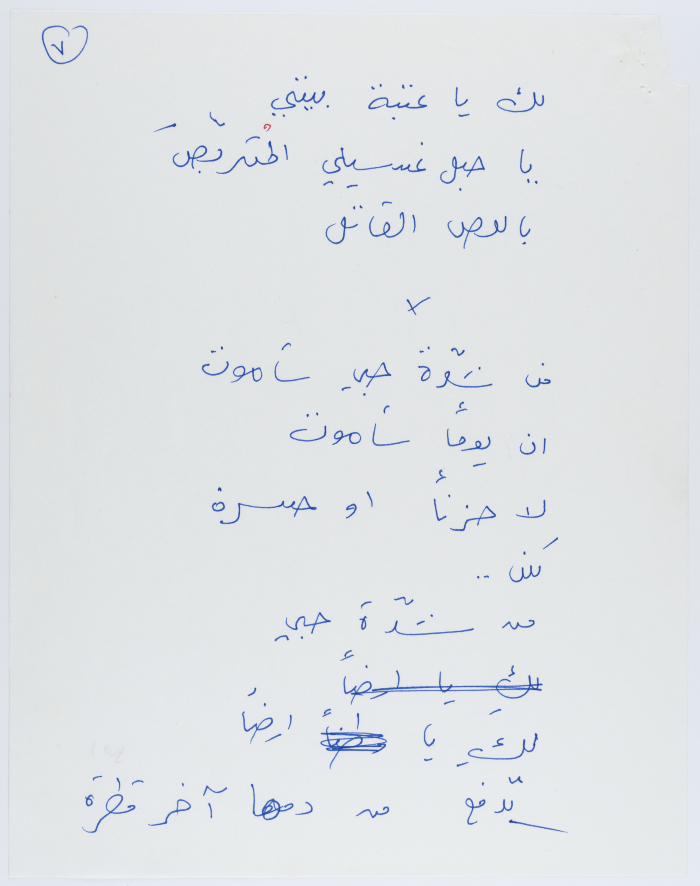 ٧
لك يا عتبة بيتي
يا حبل غسيلي المتربّصَ
باللص القاتل
×
من شدّة حبي سأموت
ان يوماً سأموت
لا حزناً او حسرة
لكن ..
من شدّة حبي
لكِ يا ارضاً
لكِ يا ارضاً
تدفع من دمها آخر قطرة